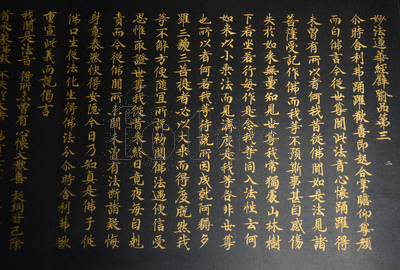 妙法蓮華經譬喻品第三 二
尒時舍利弗踊躍歡喜即起合掌瞻仰尊顏
而白佛言今從世尊聞此法音心懷踊躍得
未曾有所以者何我昔從佛聞如是法見諸
菩薩受記作佛而我等不預斯事甚自感傷
失於如來無量知見世尊我常獨處山林樹
下若坐若行每作是念我等同入法性云何
如來以小乘法而見濟度是我等咎非世尊
也所以者何若我等待說所因成就阿耨多
羅三藐三菩提者必以大乘而得度脫然我
等不解方便隨宜所說初聞佛法遇便信受
思惟取證世尊我從昔來終日竟夜每自剋
責而今從佛聞所未聞未曾有法斷諸疑悔
身意泰然快得安隱今日乃知真是佛子從
佛口生從法化生得佛法分尒時舍利弗欲
重宣此義而說偈言
我聞是法音 得所未曾有 心懷大歡喜 疑網皆已除